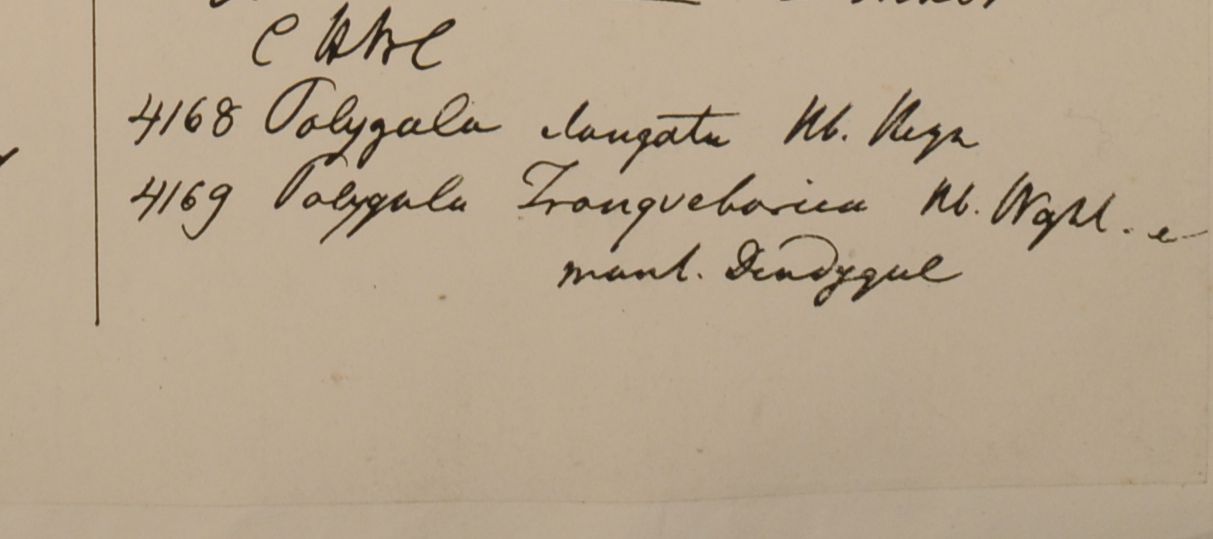 C HBC
4168 Polygala elongata Hb. Heyn
4169 Polygala Tranquebarica Hb. Wghl. e
mont. Dendygul